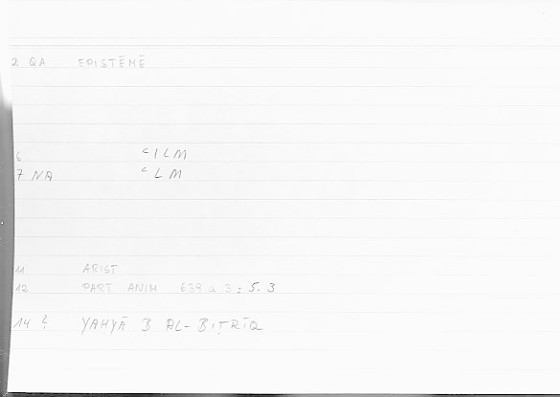 2 QA EPISTĒMĒ
6 ᶜILM
7 NA ᶜLM
11 ARIST
12 PART ANIM 639 a 3 : 5.3
14 ? YAḤYĀ B AL-BIṬRĪQ